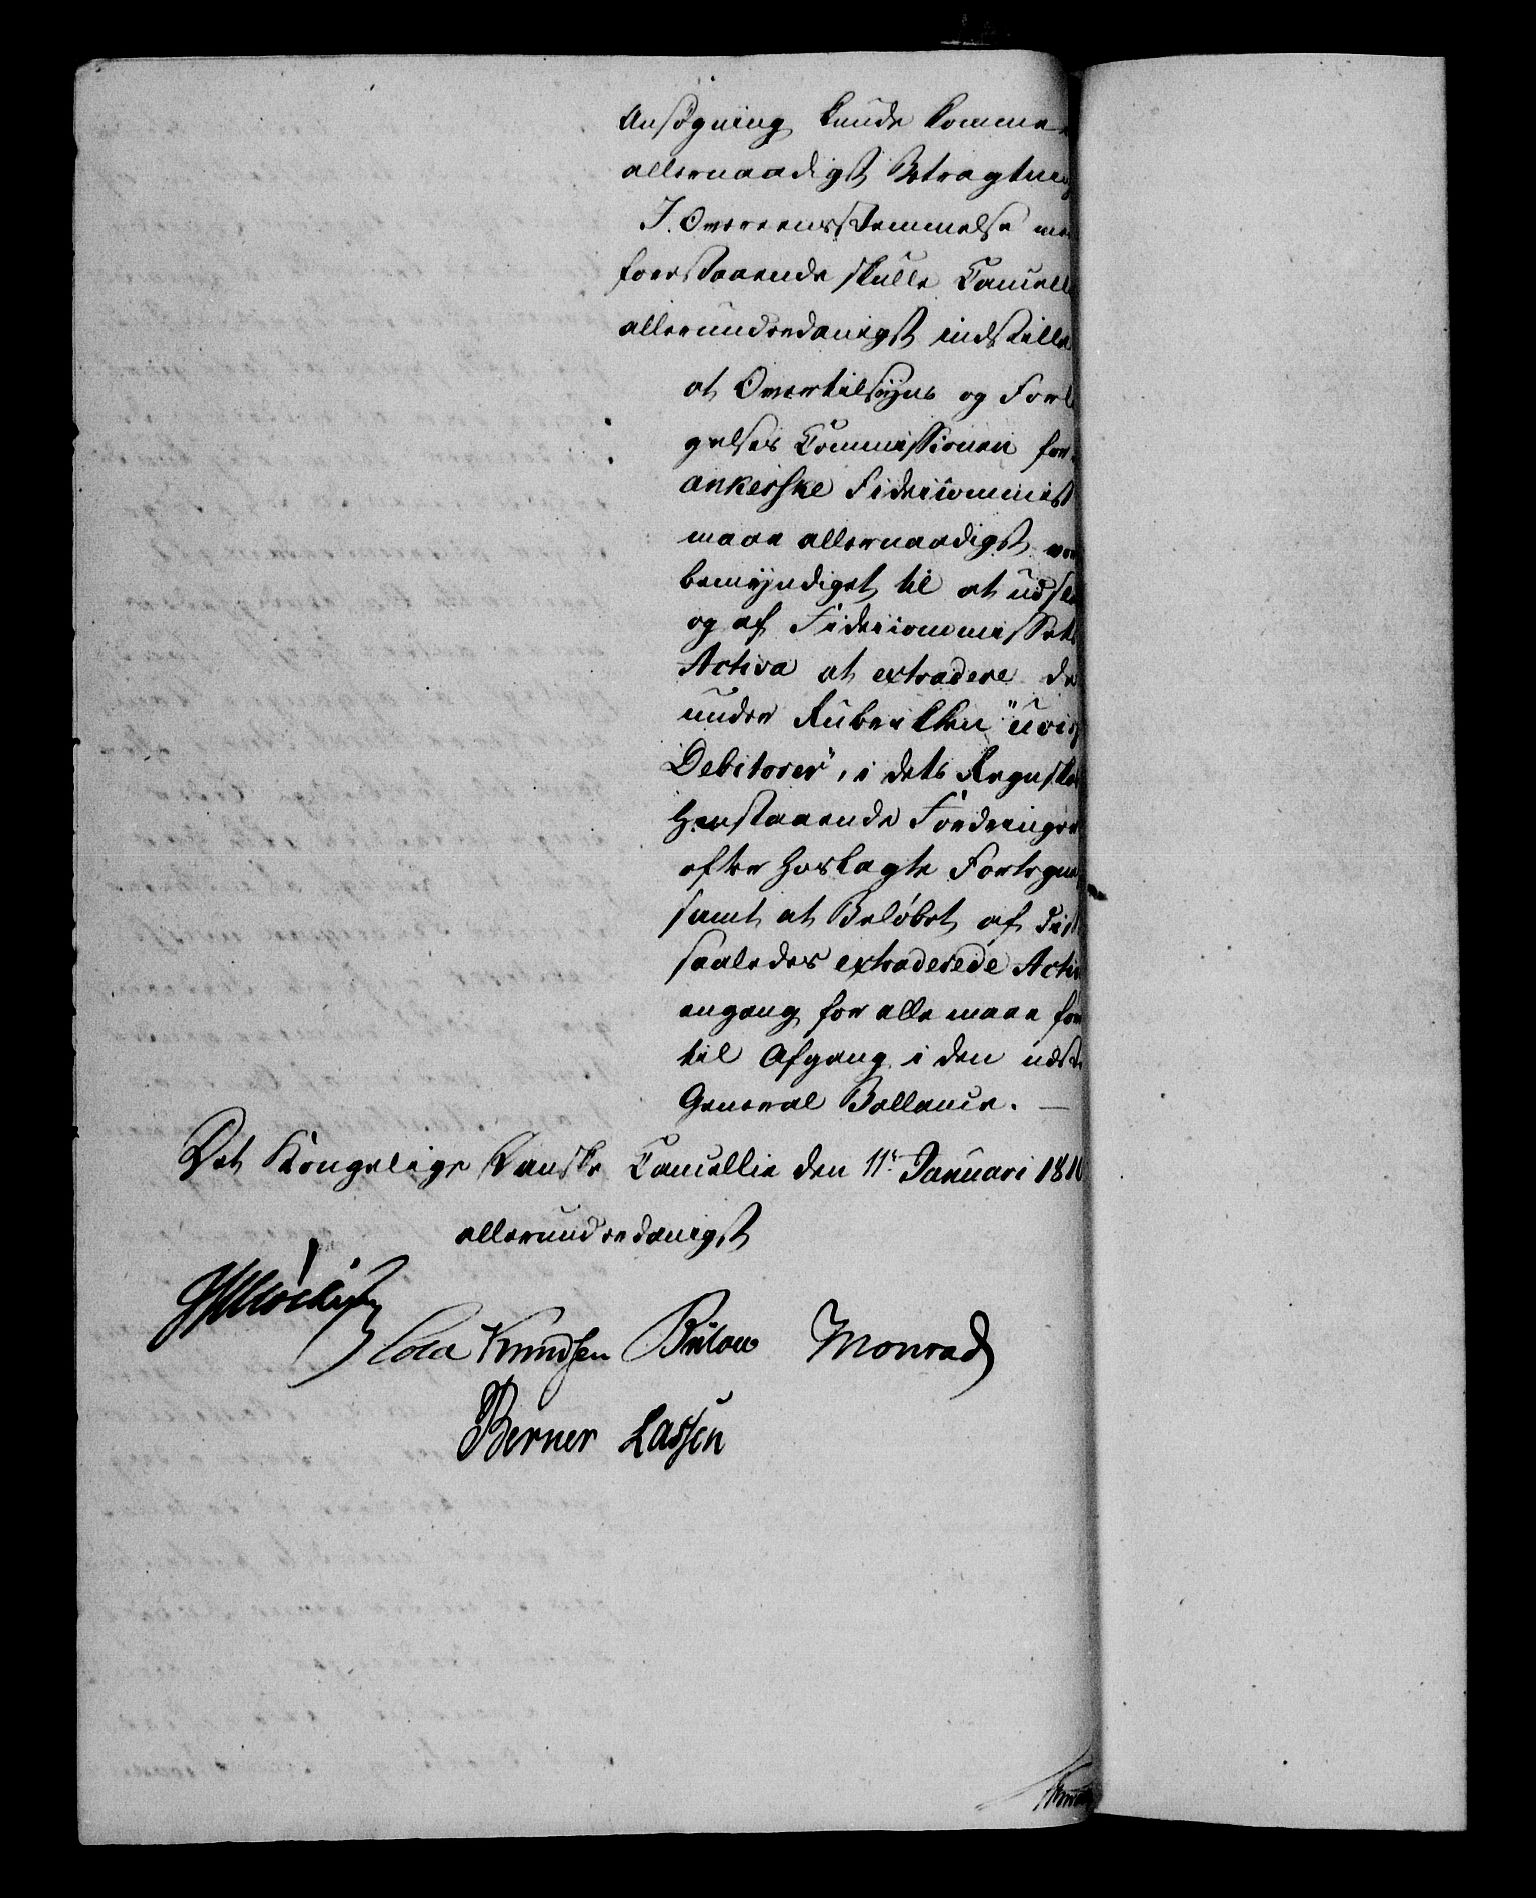 Ansøgning kunde komme
allernaadigst Betragtning
I Overeensstemmelse med
foerstaaende skulle Cancell
allerunderdanigst indstille
at Overtilsyns og Forle
gelses Commissionen for
ankerske Fideicommis
maae allernaadigst vor
bemyndiget til at udsl
og af Fideicommissets
Activa at extradere de
under Rubrikken "uvis
Debitorer", i dets Regnska
henstaaende Fordringer
efter hoslagte Fortegn
samt at Beløbet af
saaledes extraderede Activ
engang for alle maae før
til Afgang i den udst
General Ballance. —
Det Kongelige Danske Cancellie den 11te Januari 181
allerunderdanigst
Cold Knudsen Bülow Monrad
Berner Lassen